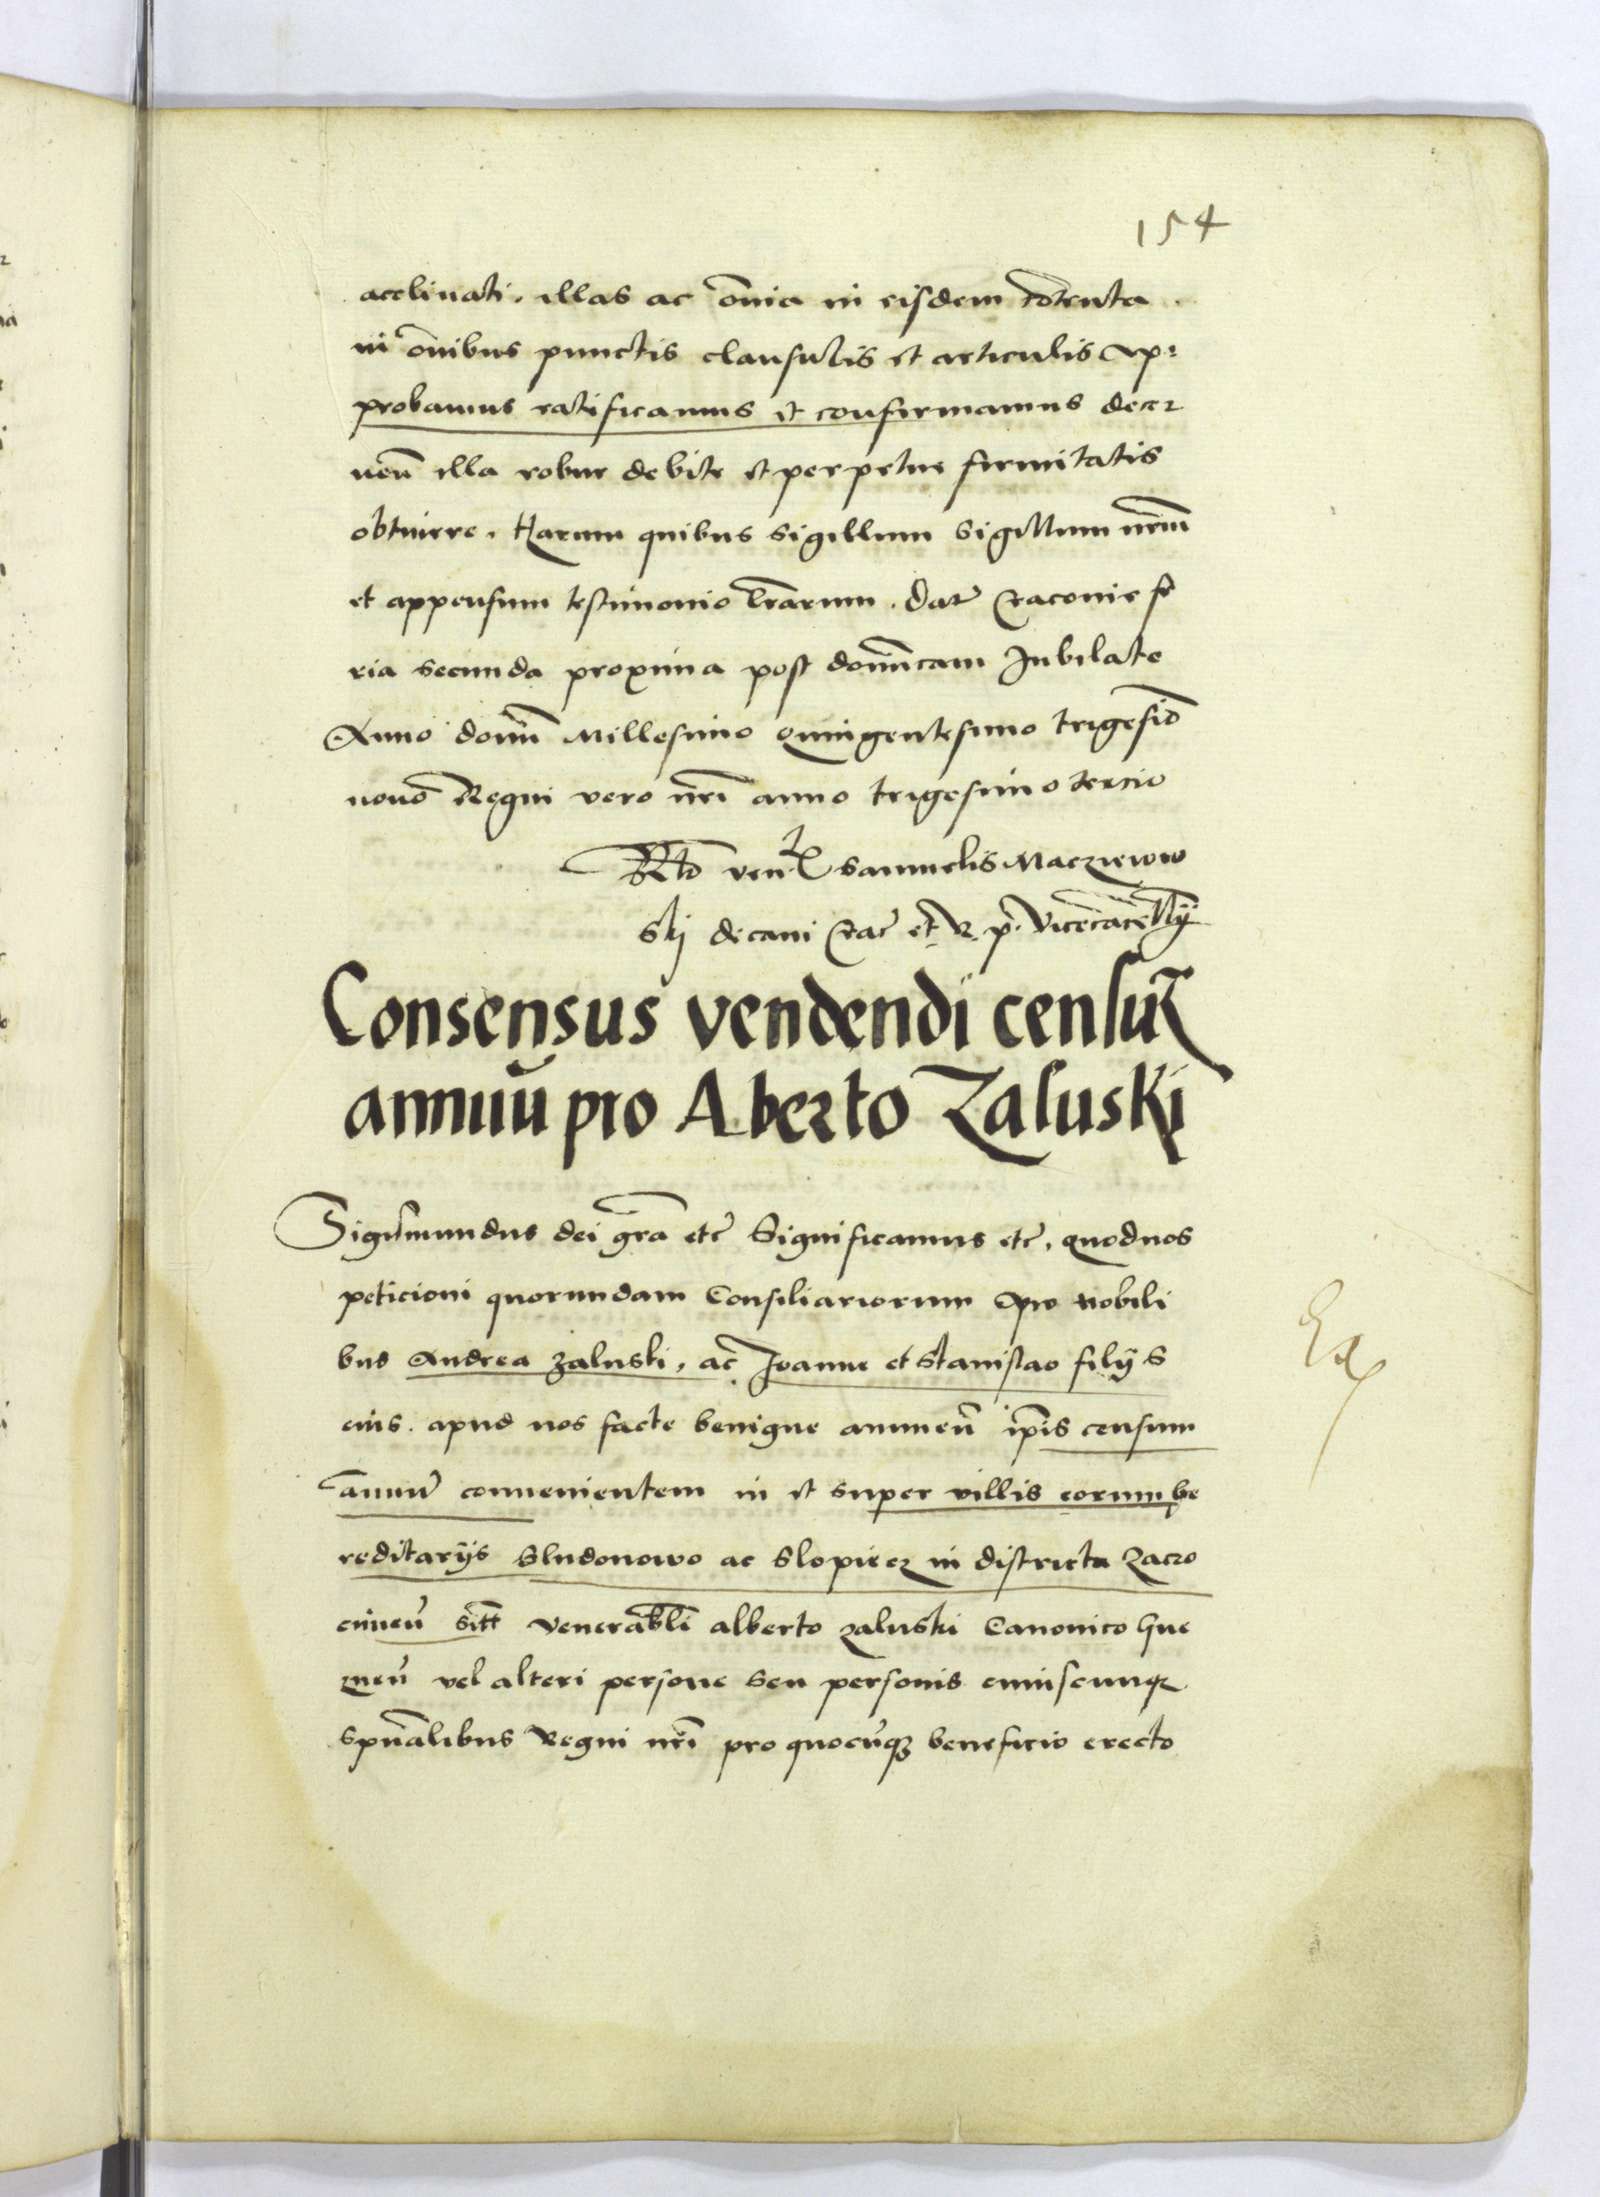 154
acclinati. illas ac o͞nia in eisdem co͞tenta.
in o͞nibus punctis clausulis et articulis ap:
probamus ratificamus et confirmamus decer
nen͞ illa robur debite et perpetue firmitatis
obtinere. Harum quibus sigillum sigillum nr͞um
et appensum testimonio lr͞arum. dat͞ Cracovie fe
ria secunda proxima post domi͞cam Jubilate
Anno domi͞ Millesimo Quingentesimo trigesi͞o
nono Regni vero nr͞i anno trigesimo tercio
Rlo͞ ven͞ Samuelis Maczieiow
skj decani Crac͞ et R. p. Vicecance͞llij
Consensus vendendi censuꝝ
annuu͞ pro Aberto Zaluski
Sigismundus dei gr͞a etc͞ Significamus etc͞. quod nos
peticioni quorundam Consiliariorum pro nobili
bus Andrea Zaluski, ac͞ Joanne et Stanislao filijs
eius. apud nos facte benigne annuen͞ ip͞is censum
annuu͞ convenientem in et super villis eorum he
reditarijs Sludonowo ac Slopiecz in districtu Zacro
cimen͞ sitt͞ venerabli͞ alberto zaluski Canonico Gne
znen͞ vel alteri persone seu personis cuiuscunqꝫ
spu͞alibus Regni nr͞i pro quocu͞qꝫ beneficio erecto